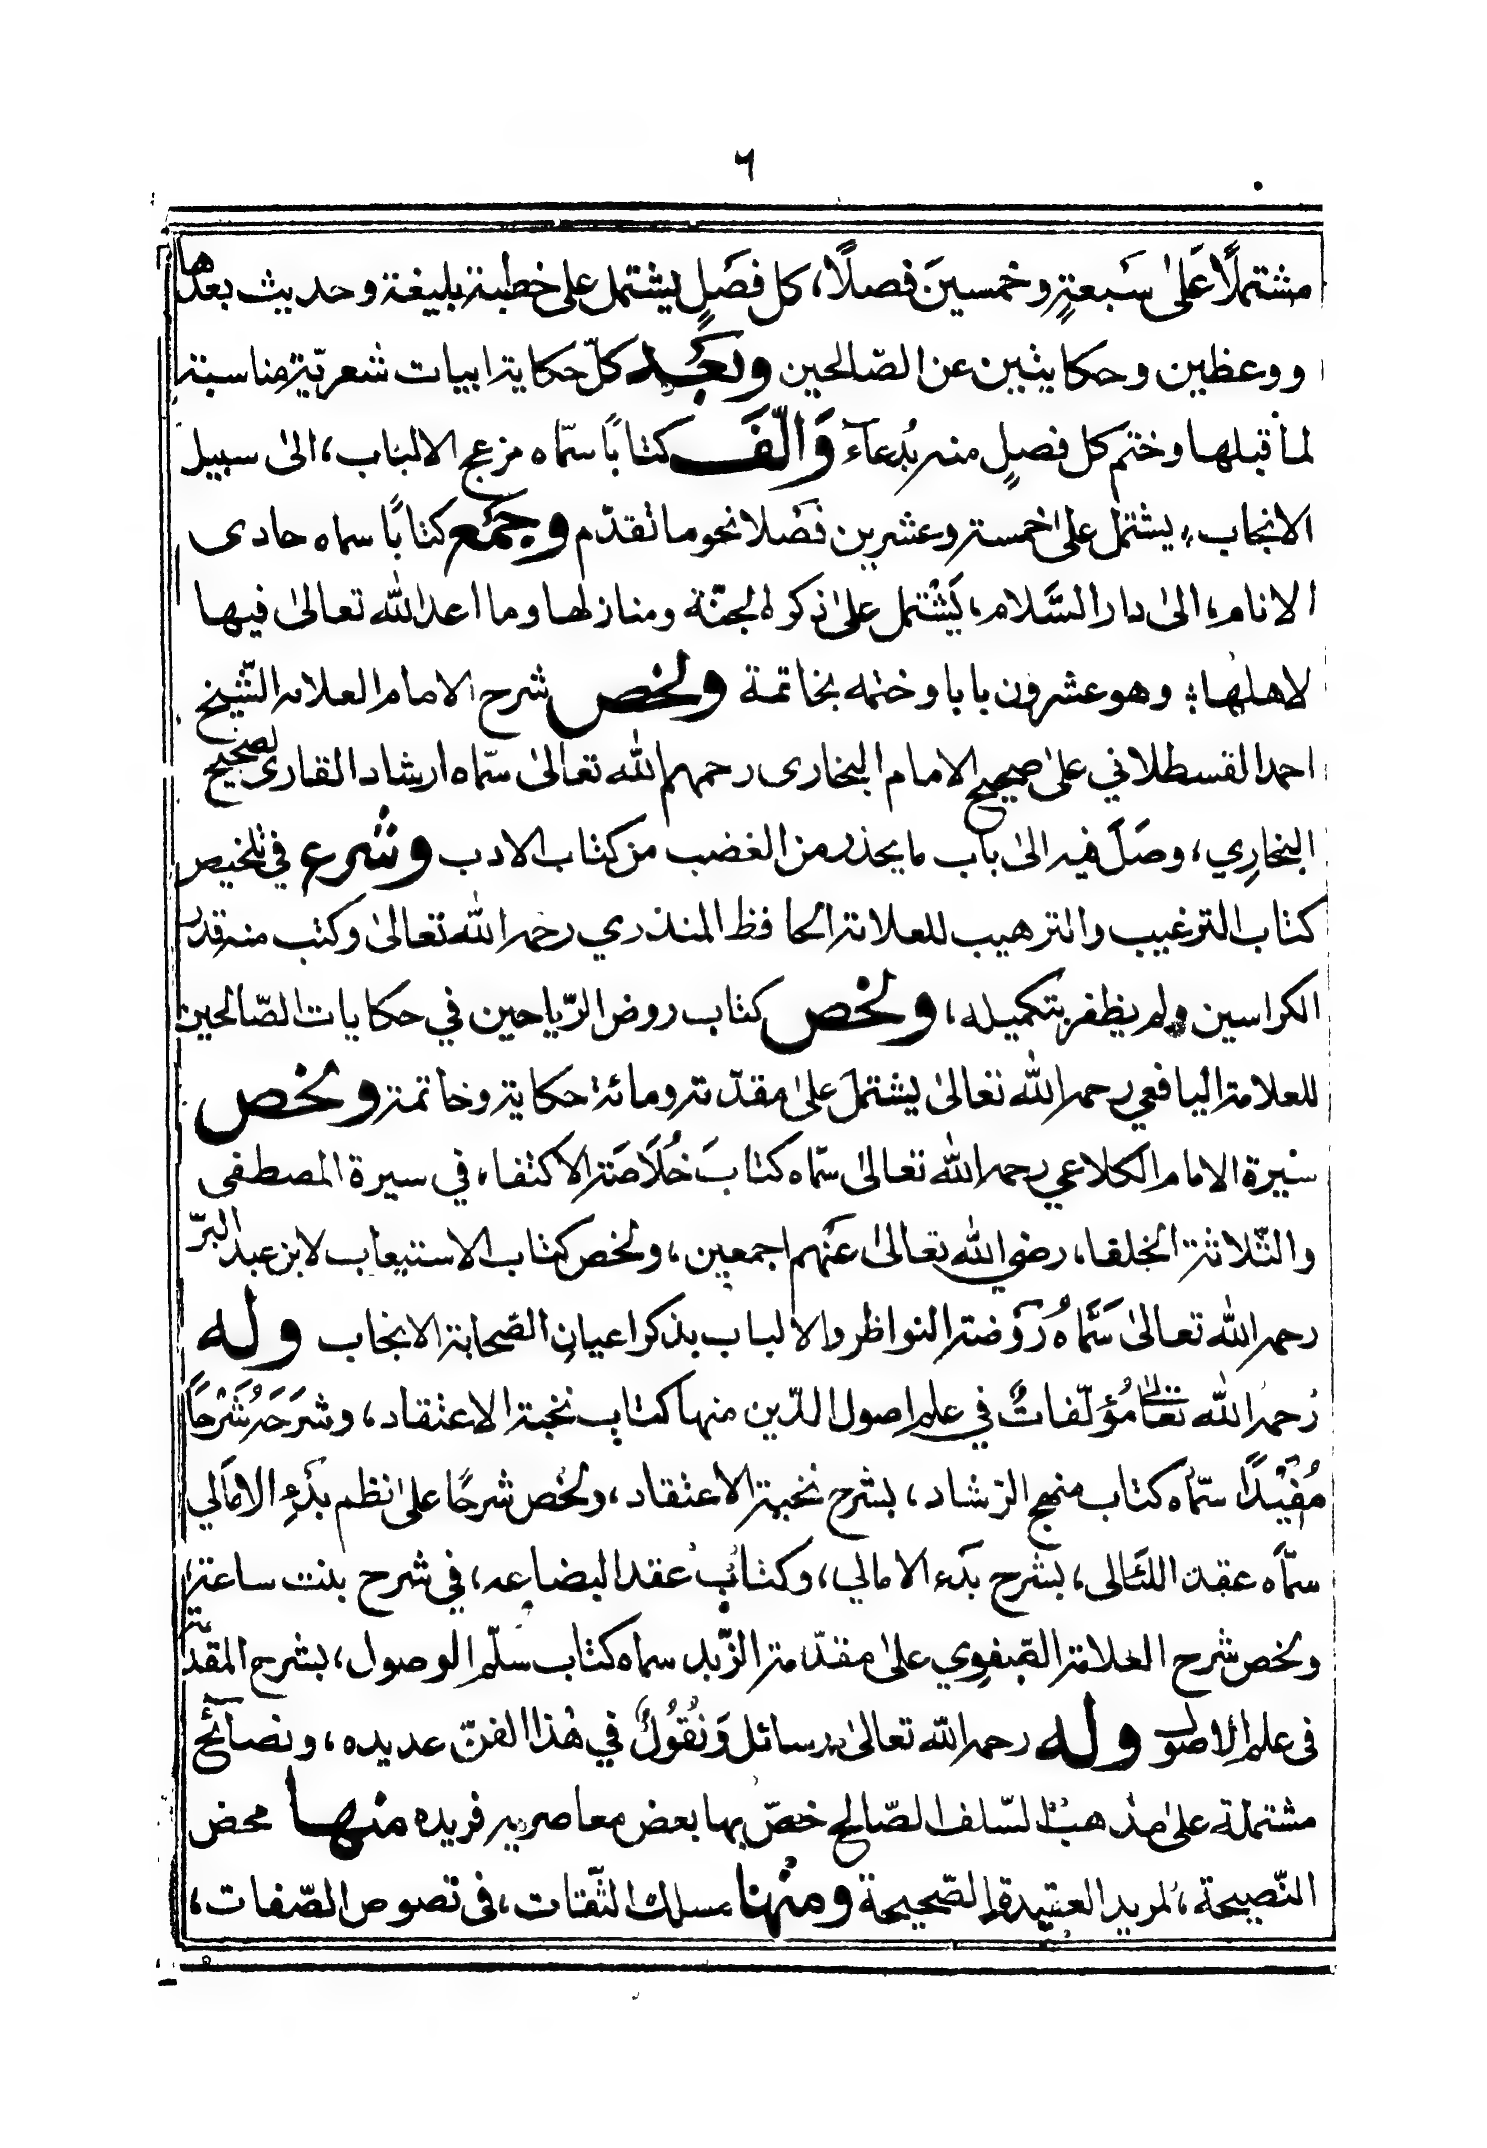 ٦
مشتملًا عَلىٰ سَبعةٍ وخمسينَ فصلًا، كل فصَلٍ يشتمل على خطبة بليغة وحديث بعدها
ووعظين وحكايتين عن الصّالحين وبَعْد كلّ حكاية ابيات شعريّة مناسبة
لما قبلها وختم كل فصلٍ منه بدُعآء وَالّفَ كتابًا سمّاه مزعج الالباب، الىٰ سبيل
الانجاب، يشتمل علىٰ خمسة وعشرين فَصْلا نحو ما تقدّم وجَمَع كتابًا سماه حادى
الانام، الىٰ دار السَّلام، يَشْتمل علىٰ ذكر الجنّة ومنازلها وما اعد الله تعالىٰ فيها
لاهلها، وهو عشرون بابا وختمه بخاتمة ولخص شرح الامام العلامة الشّيخ
احمد القسطلاني علىٰ صحيح الامام البخارى رحمهم الله تعالىٰ سمّاه ارشاد القارى لصحيح
البخارِي، وصَلَ فيه الىٰ باب ما يحذر من الغضب من كتاب الادب وشرع في تلخيص
كتاب الترغيب والترهيب للعلامة الحافظ المنذري رحمه الله تعالىٰ وكتب منه قدر
الكراسين ولم يظفر بتكميله، ولخص كتاب روض الرّياحين في حكايات الصّالحين
للعلامة اليافعي رحمه الله تعالىٰ يشتملَ علىٰ مقدّمة ومائة حكاية وخاتمة ولخص
سيرة الامام الكلاعي رحمه الله تعالىٰ سمّاه كتابَ خُلَاصَة الاكتفا، في سيرة المصطفى
والثّلاثة الخلفا، رضي الله تعالىٰ عَنْهم اجمعين، ولخص كتاب الاستيعاب لابن عبد البرّ
رحمه الله تعالىٰ سَمَّاهُ رَوْضة النواظر والالباب بذكر اعيان الصّحابة الانجاب وله
رحمه الله تعالىٰ مُؤلّفاتٌ في علم اصول الدّين منها كتاب نخبة الاعتقاد، وشرَحَهُ شَرْحَاً
مُفيْدًا سمّاه كتاب منهج الرّشاد، بشرح نخبة الاعتقاد، ولخص شرحًا علىٰ نظم بَدْءِ الامَالي
سمّاه عقد اللئالى، بشرح بَدء الامالي، وكتابُ عقد البضاعه، في شرح بنت ساعة،
ولخص شرح العلامة الصّفوِي علىٰ مقدّمة الزّبد سماه كتاب سلّم الوصول، بشرح المقدّمة
فى علم الاصول وله رحمه الله تعالىٰ رسائل وَنُقُولٌ في هٰذا الفنّ عديده، ونصآئح
مشتملة علىٰ مذهب السّلف الصّالح خصّ بها بعض معاصريه فريده منها محض
النّصيحة، لمريد العقيدة الصّحيحة ومنها مسلك الثّقات، فى نصوص الصّفات،